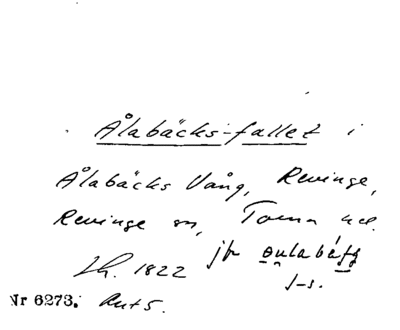 Ålabäcks-fallet i
Ålabäcks Vång, Revinge,
Revinge sn, Torna hd.
Lh. 1822 jfr
s-s.
Nr 6273.